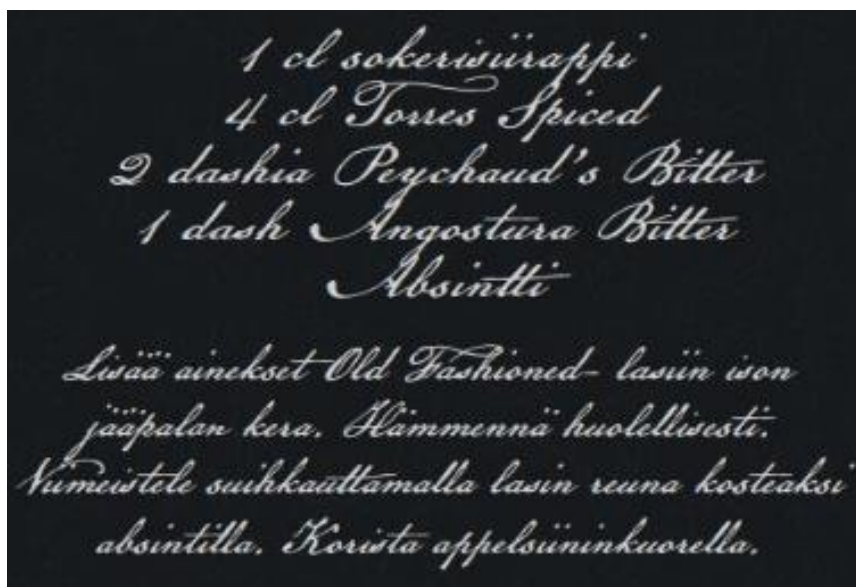 1 cl sokerisiirappi
4 cl Torres Spiced
2 dashia Peychaud's Bitter
1 dash Angostura Bitter
Absintti
Lisää ainekset Old Fashioned- lasiin ison
jääpalan kera. Hämmennä huolellisesti.
Viimeistele suihkauttamalla lasin reuna kosteaksi
absintilla. Korista appelsiininkuorella.